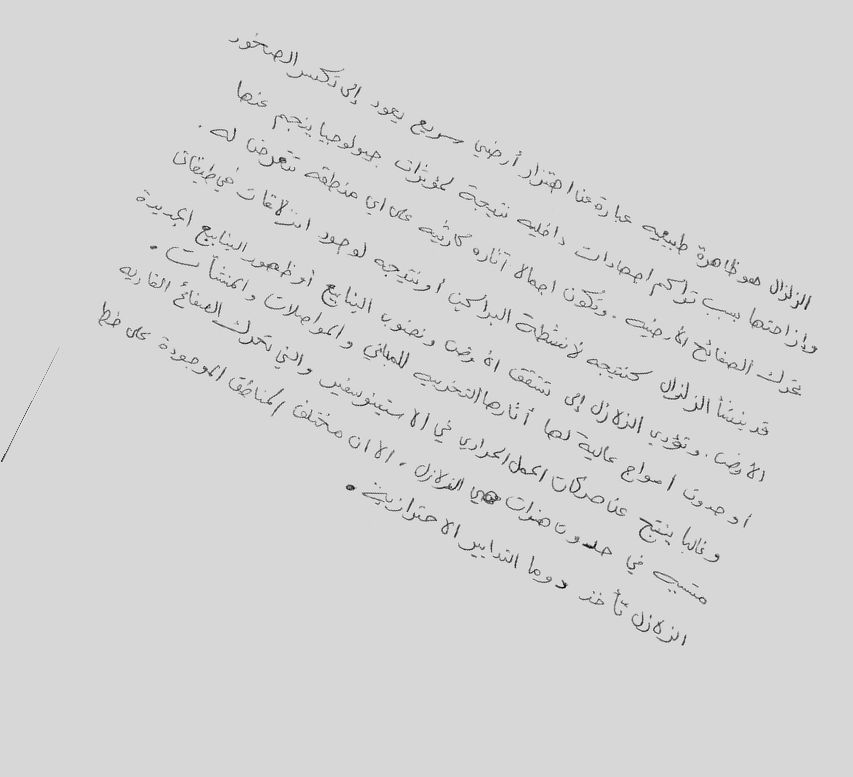 الزلزال هو ظاهرة طبيعيه عبارة عن اهتزاز أرضي سريع يعود إلى تكسر الصخور
وإزاحتها بسبب تراكم اجهادات داخليه نتيجة لمؤثرات جيولوجيا ينجم عنها
تحرك الصفائح الأرضيه . وتكون اجمالا آثاره كارثيه على اي منطقه تتعرض له .
قد ينشأ الزلزال كنتيجه لأنشطة البراكين أو نتيجه لوجود انزلاقات في طبقات
الأرض . وتؤدي الزلازل إلى تشقق الأرض ونضوب الينابيع أو ظهور الينابيع الجديدة
أو حدوث أمواج عالية لها أثارها التخريبيه للمباني والمواصلات والمنشأت .
وغالبا ينتج عن حركات الحمل الحراري في الاستينوسفير والتي تحرك الصفائح القاريه
متسببه في حدوث هزات هي الزلازل . الا ان مختلف المناطق الموجودة على خط
الزلازل تأخذ دوما التدابير الاحترازية .